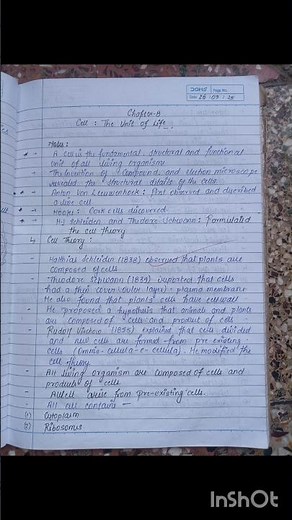 DOMS Page No.
Date 28 09 25
Chapter-8
Cell : The Unit of Life
Notes :
A cell is the fundamental, structural and functional
unit of all living organisms
The invention of Compound and electron microscope
revealed the structural details of the cells.
Anton Von Leeuwenhoek : First observed and described
a live cell.
Hooke : Cork cells discovered
Schleiden and Theodore Schwann : Formulated
the cell theory
Cell Theory :
Matthias Schleiden (1838) observed that plants are
composed of cells
Theodore Schwann (1839) that cells
had a thin layer = plasma membrane
He also found that plants cells have cell wall
He proposed a hypothesis that animals and plants
are composed of cells and product of cells
Rudolf (1855) explained that cells divided
and new cells are formed from pre-existing
cells (Omnis-cellula-e-cellula). He modified the
cell theory
All living organism are composed of cells and
products of cells
All cell arise from pre-existing cells.
All cell contains -
(1) Cytoplasm
(2) Ribosomes
InShOt